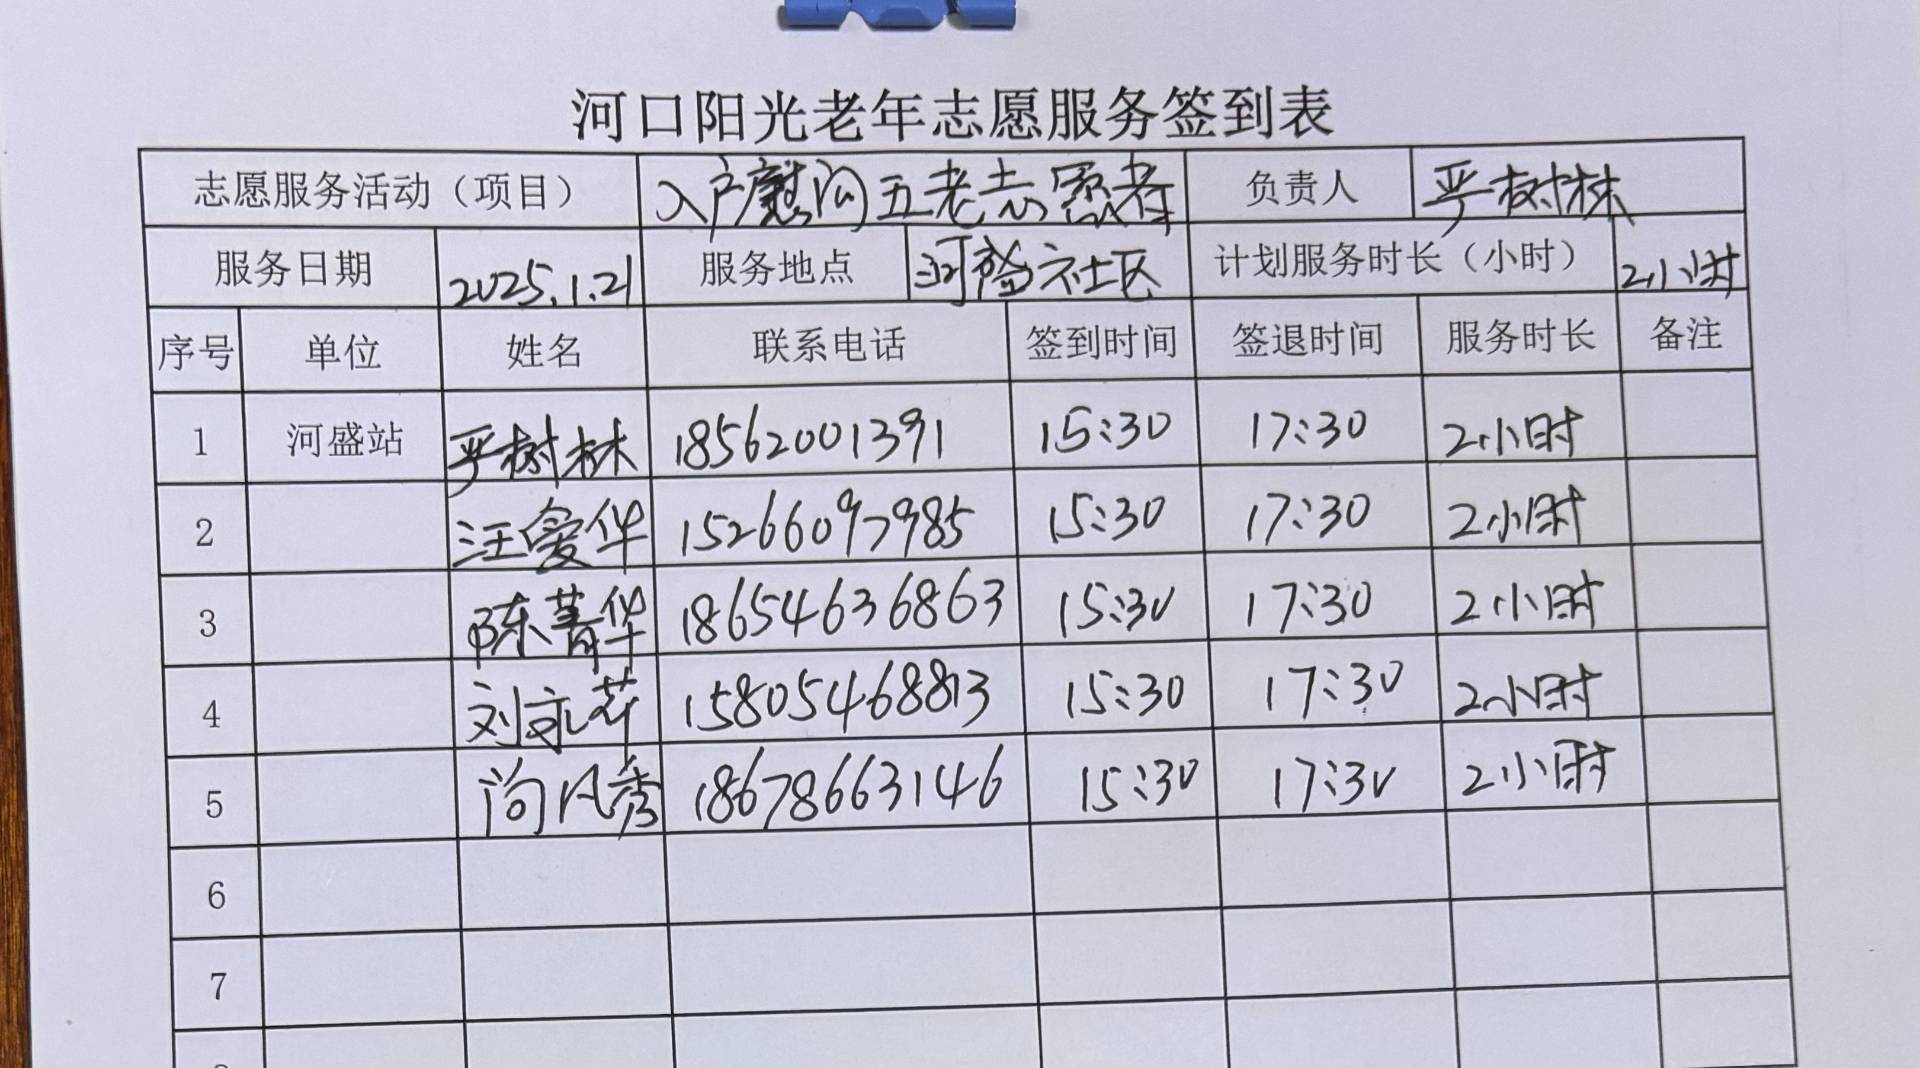 河口阳光老年志愿服务签到表
志愿服务活动（项目） 入户慰问五老志愿者 负责人 严树林
服务日期 2025.1.21 服务地点 河盛社区 计划服务时长（小时） 2小时
序号 单位 姓名 联系电话 签到时间 签退时间 服务时长 备注
1 河盛站 严树林 18562001391 15:30 17:30 2小时
2 汪爱华 15266097985 15:30 17:30 2小时
3 陈菁华 18654636863 15:30 17:30 2小时
4 刘永芹 15805468813 15:30 17:30 2小时
5 尚风秀 18678663146 15:30 17:30 2小时
6
7